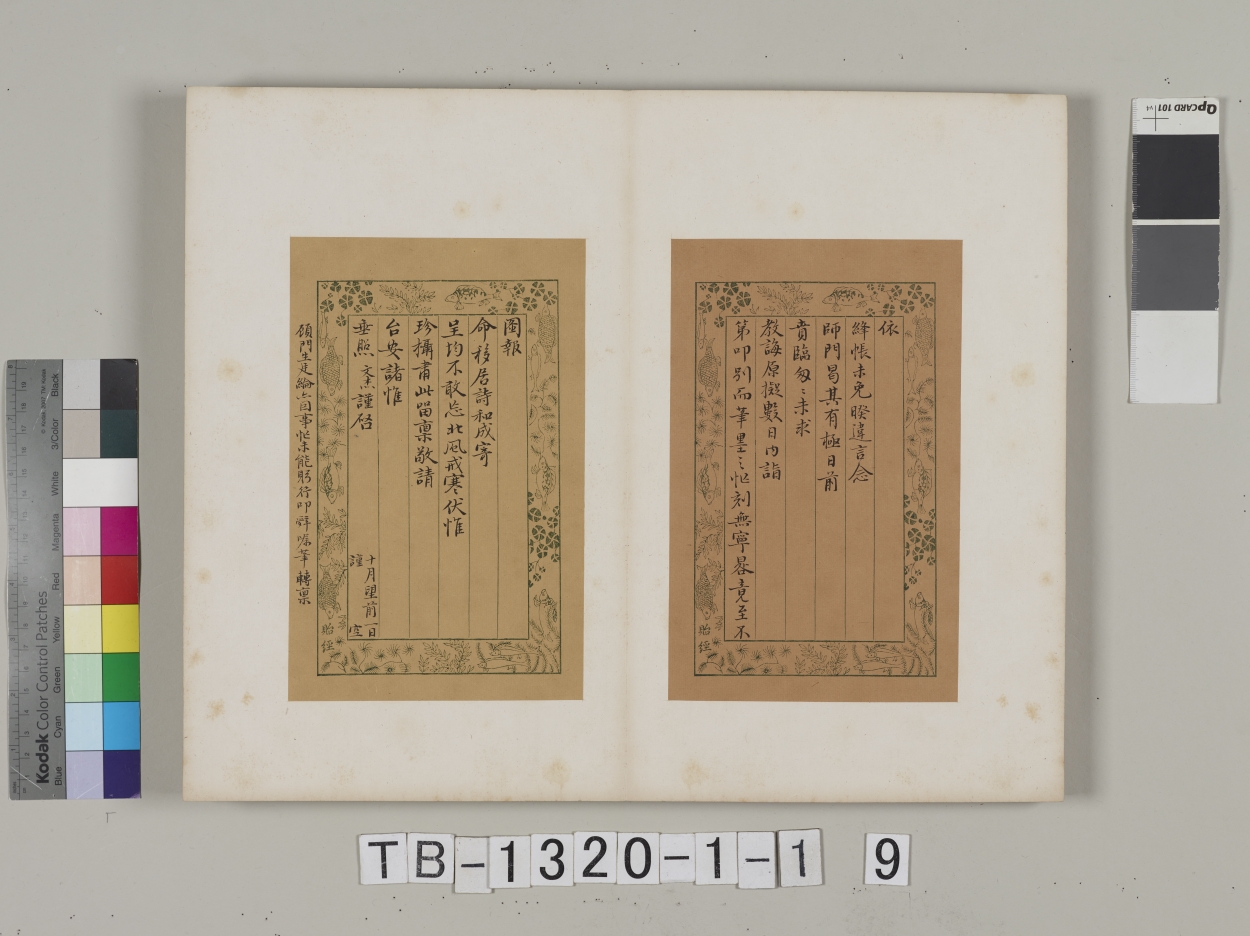 依
絳帳未免暌違言念
師門曷其有極日前
賁臨匆〻未求
教誨原擬數日內詣
第叩別而筆墨之忙刻無寧晷竟至不
圖報
命移居詩和成寄
呈均不敢忘北風戒寒伏惟
珍攝肅此留稟敬請
台安諸惟
垂照 文燾謹啓
十月望前一日
謹空
頌門生廷綸六自事忙未能躬行叩辭囑筆轉稟
胎
胎
TB-1320-1-1 9
Kodak Color Control Patches
Blue Cyan Green Yellow Red Magenta White 3/Color Black
QPCARD 101 v4